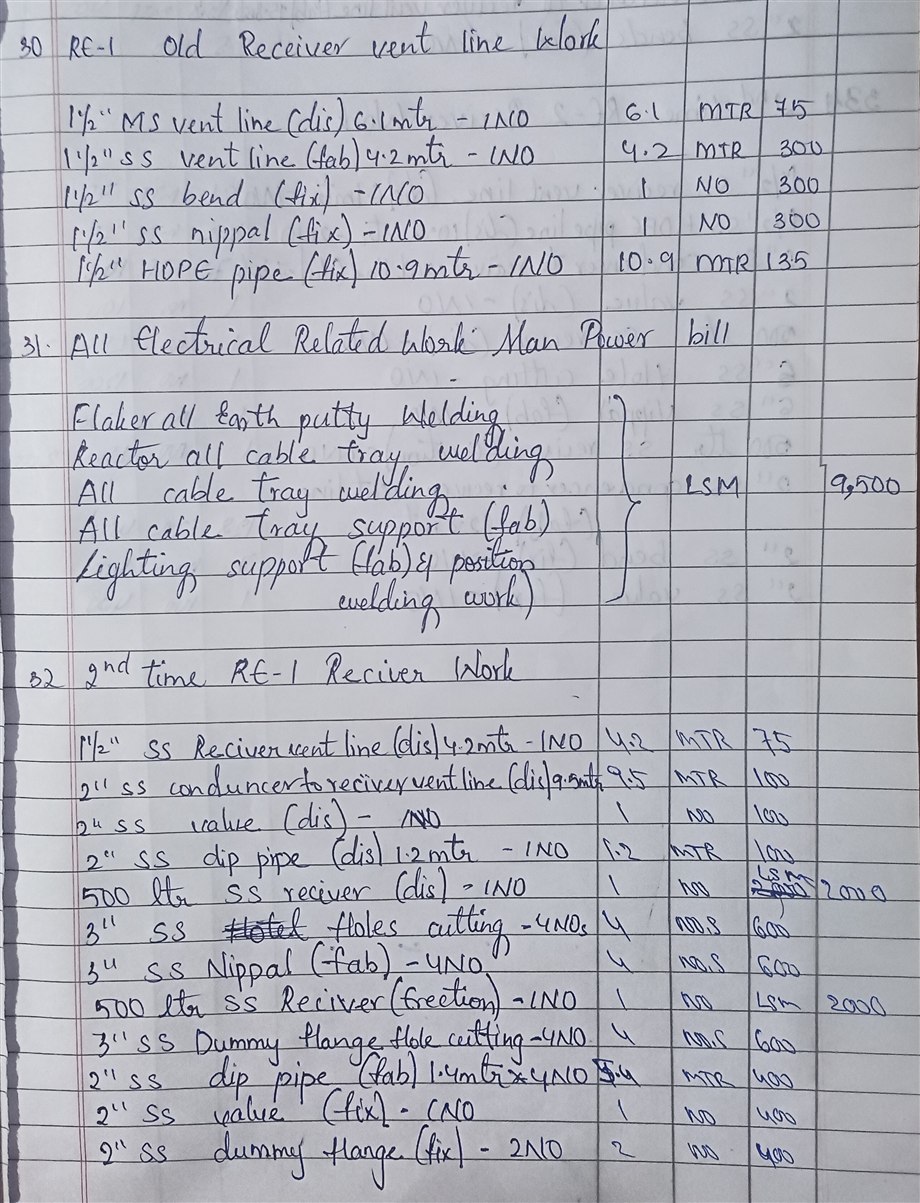 30 RE-1 Old Receiver vent line Work
1½" MS vent line (dis) 6.1mtr - 1NO 6.1 MTR 75
1½" SS vent line (fab) 4.2 mtr - 1NO 4.2 MTR 300
1½" SS bend (fix) - 1NO 1 NO 300
1½" SS nippal (fix) - 1NO 1 NO 300
1½" HDPE pipe (fix) 10.9mtr - 1NO 10.9 MTR 135
31. All Electrical Related Work Man Power bill
Flaker all Earth putty Welding
Reactor all cable tray welding
All cable tray welding LSM 9,500
All cable tray support (fab)
Lighting support (fab) & position
welding work)
32 2nd time RE-1 Reciver Work
1½" SS Reciver vent line (dis) 4.2mtr - 1NO 4.2 MTR 75
2" SS conduncer to reciver vent line (dis) 9.5mtr 9.5 MTR 100
2" SS value (dis) - 1NO 1 NO 100
2" SS dip pipe (dis) 1.2mtr - 1NO 1.2 MTR 100
500 ltr SS reciver (dis) - 1NO 1 NO LSM 2000
3" SS Holes cutting - 4NOs 4 NO.S 600
3" SS Nippal (fab) - 4NO 4 NO.S 600
500 ltr SS Reciver (Erection) - 1NO 1 NO LSM 2000
3" SS Dummy flange Hole cutting - 4NO 4 NO.S 600
2" SS dip pipe (fab) 1.4mtr x 4NO 5.4 MTR 400
2" SS value (fix) - 1NO 1 NO 400
2" SS dummy flange (fix) - 2NO 2 NO 400